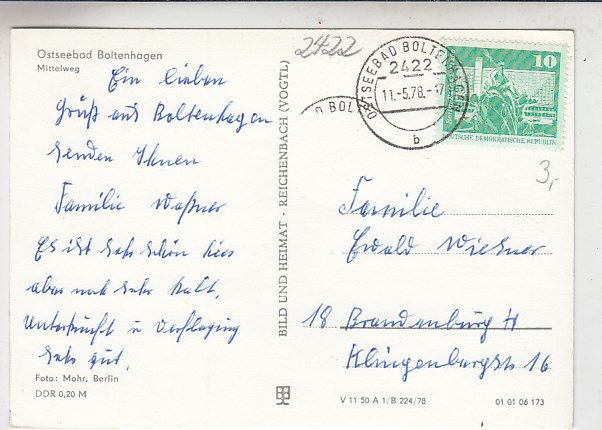 Ostseebad Boltenhagen
Mittelweg
Ein lieben
Gruß aus Boltenhagen
senden Ihnen
Familie Waßner
Es ist sehr schön hier
aber noch sehr kalt,
Unterkunft u Verpflegung
sehr gut.
Foto: Mohr, Berlin
DDR 0,20 M
BILD UND HEIMAT · REICHENBACH (VOGTL)
2422
OSTSEEBAD BOLTENHAGEN
2422
11.-5.78.-17
b
D BOL
10
DEUTSCHE DEMOKRATISCHE REPUBLIK
3,-
Familie
Ewald Wießner
18 Brandenburg H
Klingenbergstr 16
V 11 50 A 1/B 224/78
01 01 06 173